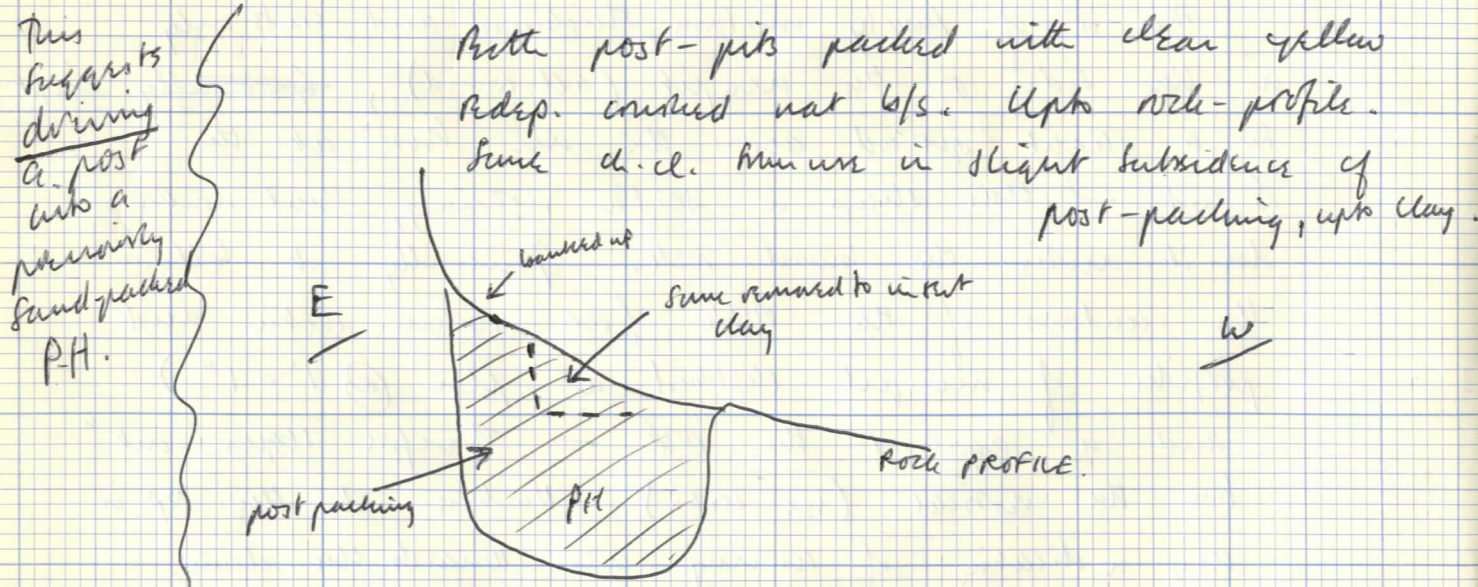 This
suggests
driving
a post
into a
previously
sand-packed
PH.
Both post-pits packed with clean yellow
redep. crushed nat b/s. Upto rock-profile.
Some d.c. humus in slight subsidence of
post-packing, upto clay.
banked up
some removed to insert
clay
E
W
ROCK PROFILE.
post packing
PH